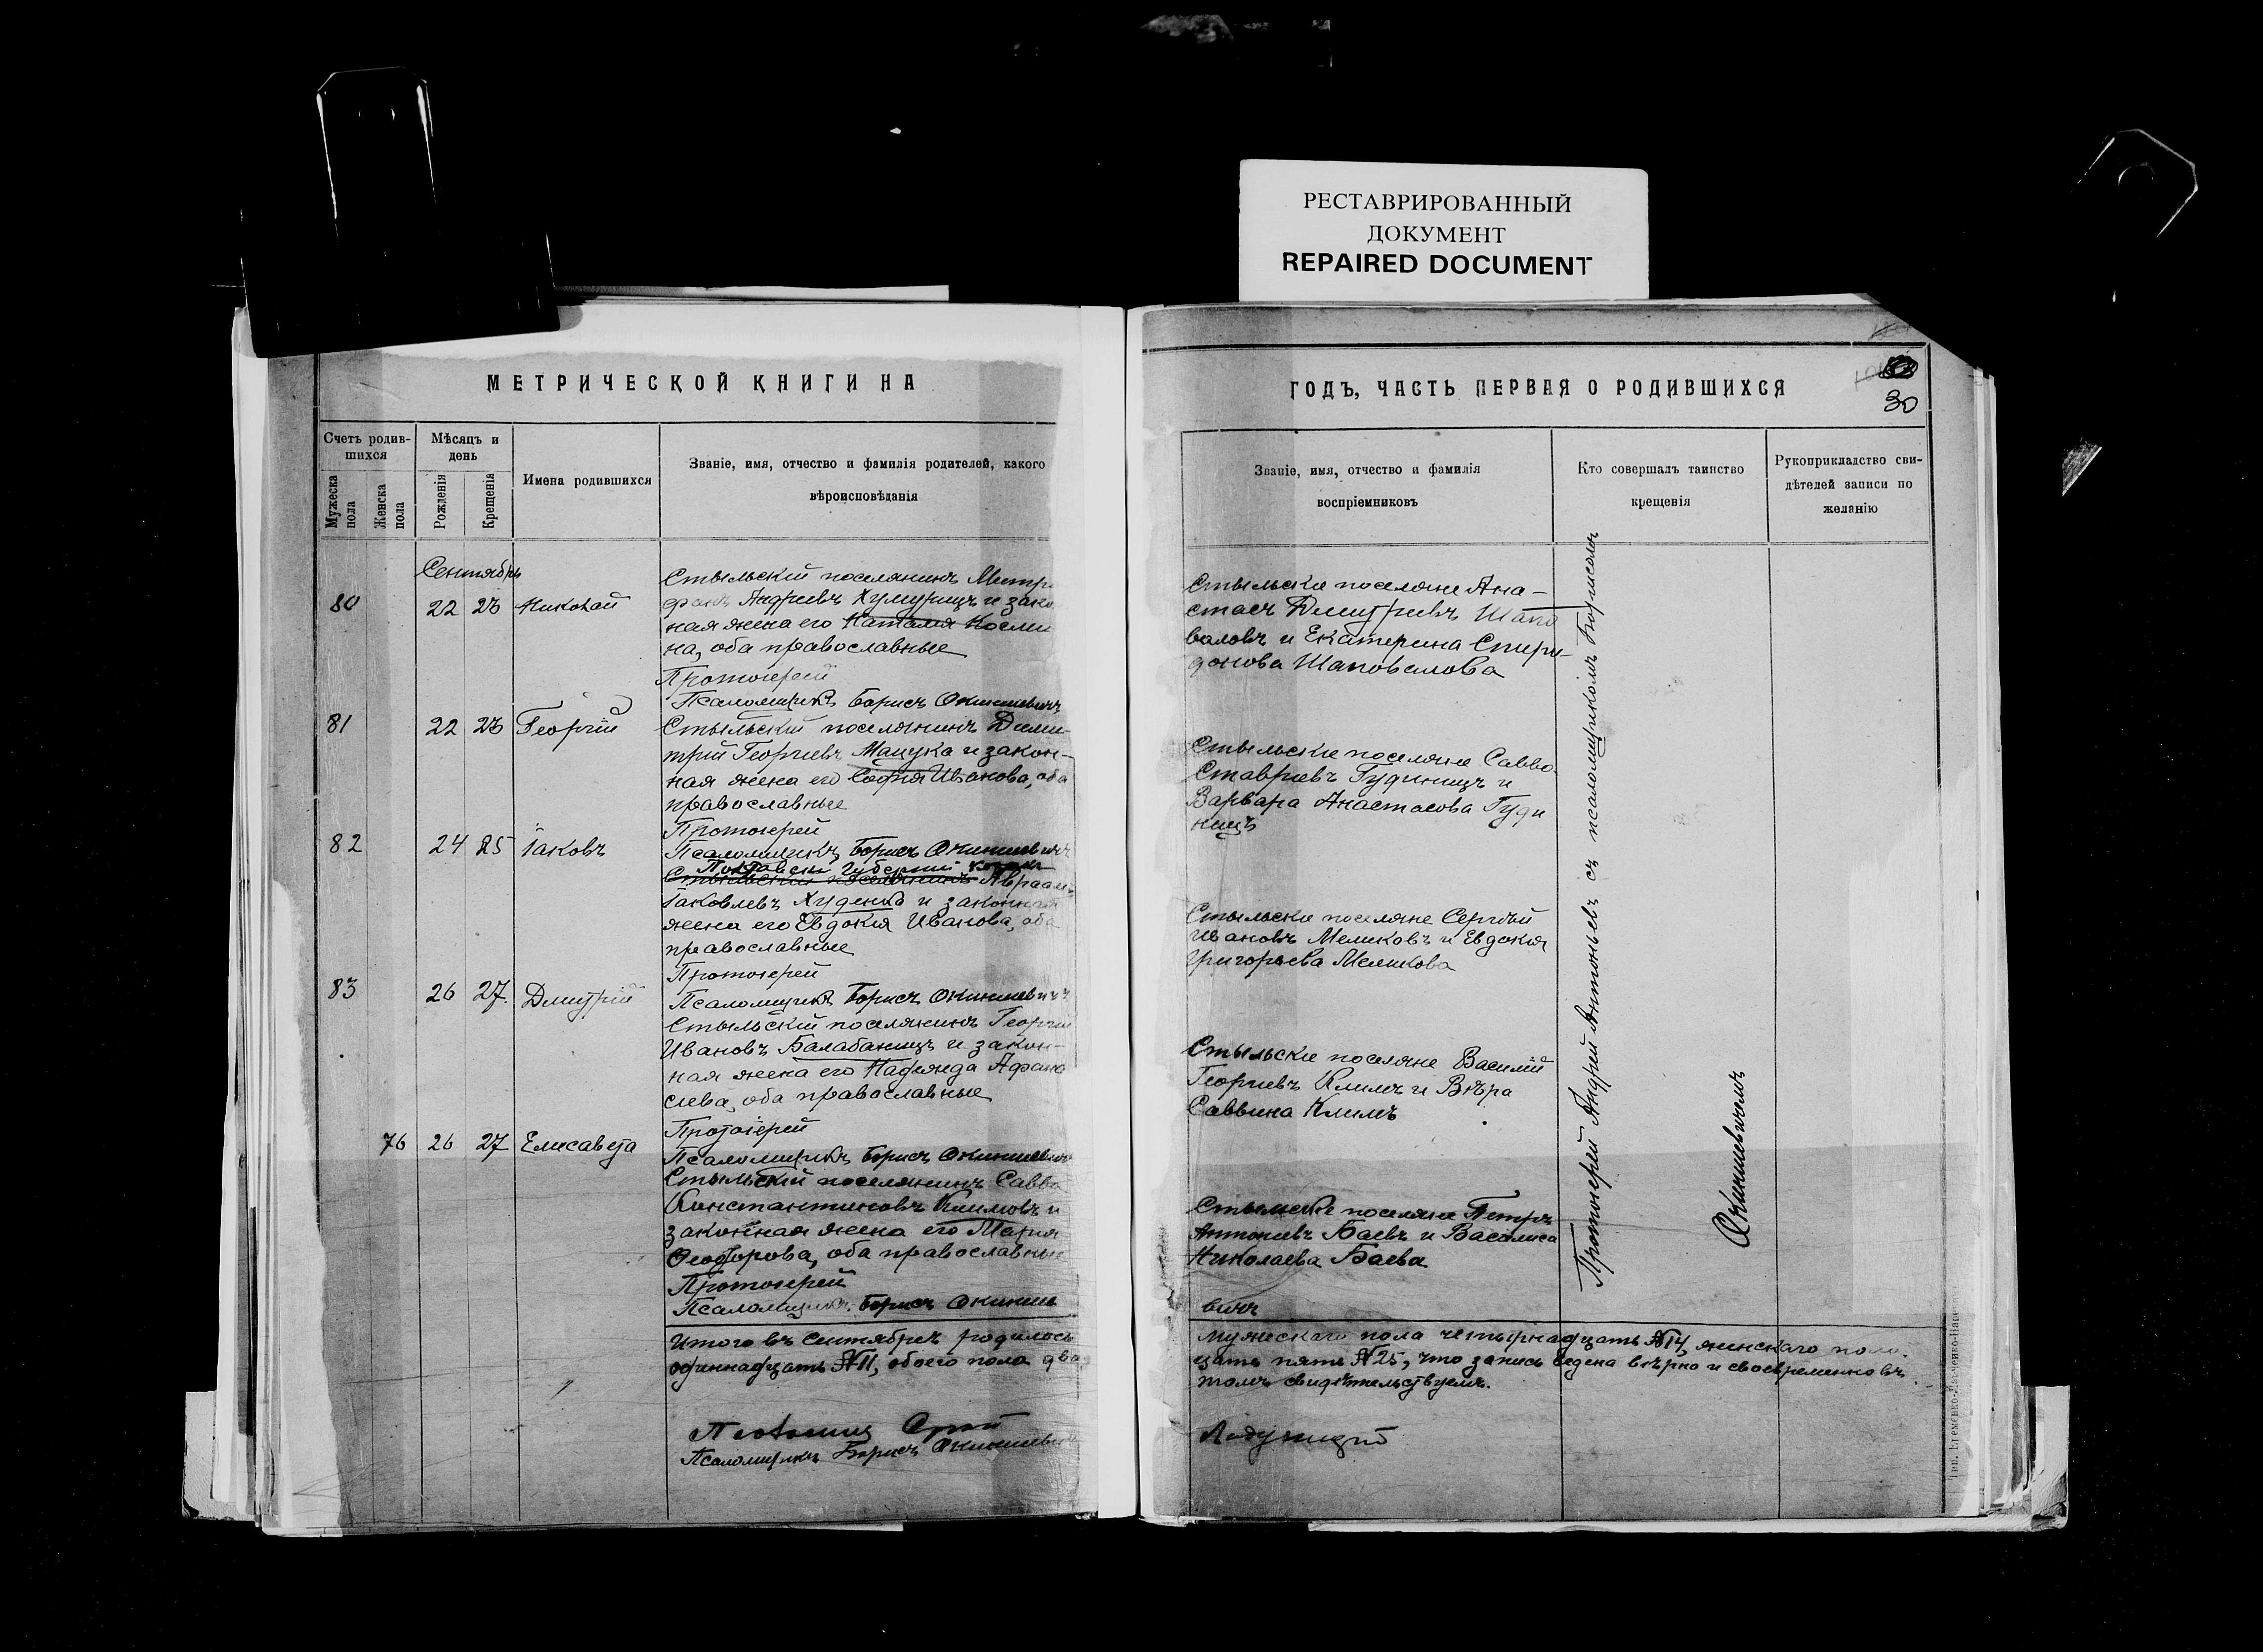 РЕСТАВРИРОВАННЫЙ
ДОКУМЕНТ
REPAIRED DOCUMENT
МЕТРИЧЕСКОЙ КНИГИ НА
Счетъ родив-
шихся
Мужеска
пола
Женска
пола
Мѣсяцъ и
день
Рожденія
Крещенія
Имена родившихся
Званіе, имя, отчество и фамилія родителей, какого
вѣроисповѣданія
Сентябрь
80 22 23 Николай
Стыльскій поселянинъ Митр
фанъ Андреевъ Хумурицъ и зако
ная жена его Наталія Косми
на, оба православные
Протоіерей
Псаломщикъ Борисъ Окиншевичъ
81 22 23 Георгій
Стыльскій поселянинъ Дими-
трій Георгіевъ Мацука и закон-
ная жена его Софія Иванова, оба
православные
Протоіерей
Псаломщикъ Борисъ Окиншевичъ
82 24 25 Іаковъ
Полтавской Губерніи козакъ
Стыльскій поселянинъ Авраам
Іаковлевъ Худенко и законная
жена его Евдокія Иванова, оба
православные
Протоіерей
Псаломщикъ Борисъ Окиншевичъ
83 26 27. Дмитрій
Стыльскій поселянинъ Георгій
Ивановъ Балабаницъ и закон-
ная жена его Надежда Афана
сіева, оба православные
Протоіерей
Псаломщикъ Борисъ Окиншевичъ
76 26 27 Елисавета
Стыльскій поселянинъ Савва
Константиновъ Климовъ и
законная жена его Марія
Ѳеодорова, оба православные
Протоіерей
Псаломщикъ Борисъ Окинше
Итого въ Сентябрѣ родилось
одиннадцать №11, обоего пола два
Псаломщикъ Борисъ Окиншевичъ
ГОДЪ, ЧАСТЬ ПЕРВАЯ О РОДИВШИХСЯ
30
Званіе, имя, отчество и фамилія
воспріемниковъ
Кто совершалъ таинство
крещенія
Рукоприкладство сви-
дѣтелей записи по
желанію
Стыльскіе поселяне Ана-
стасъ Дмитріевъ Шапо
валовъ и Екатерина Спири-
донова Шаповалова
Стыльскіе поселяне Савва
Ставріевъ Гудиницъ и
Варвара Анастасова Гуди
ницъ
Стыльскіе поселяне Сергѣй
Ивановъ Меликовъ и Евдокія
Григорьева Меликова
Стыльскіе поселяне Василій
Георгіевъ Климъ и Вѣра
Саввина Климъ
Стыльскіе поселяне Петръ
Антоніевъ Баевъ и Василиса
Николаева Баева
вичъ
Протоіерей Андрей Антоньевъ съ псаломщикомъ Борисомъ
Окиншевичемъ
мужескаго пола четырнадцать №14, женскаго пола
цать пять №25, что запись ведена вѣрно и своевременно въ
томъ свидѣтельствуемъ.